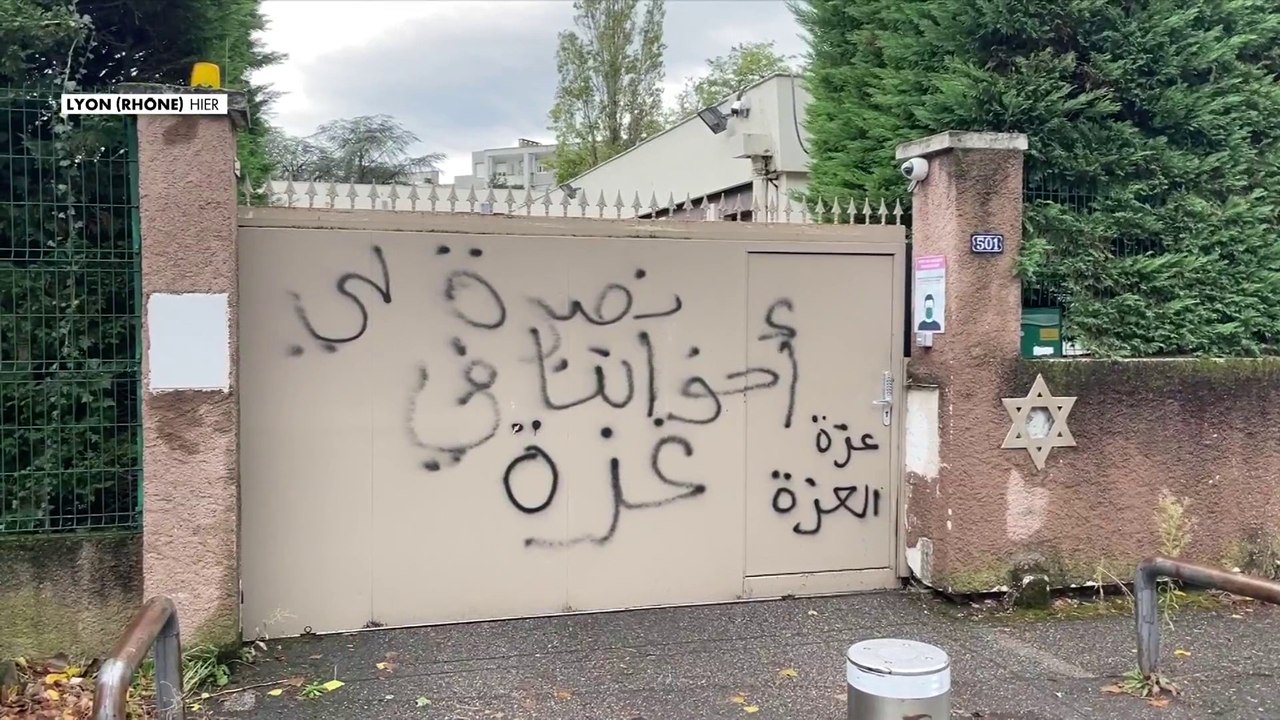 LYON (RHÔNE) HIER
نصرة لي
أخواننا في
غزة
عزّة
العزة
501